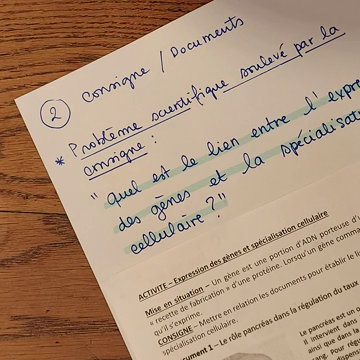 ② Consigne / Documents
* Problème scientifique soulevé par la
consigne :
"quel est le lien entre l'expre
des gènes et la spécialisat
cellulaire ?"
ACTIVITE – Expression des gènes et spécialisation cellulaire
Mise en situation – Un gène est une portion d'ADN porteuse d
« recette de fabrication » d'une protéine. Lorsqu'un gène comma
qu'il s'exprime.
CONSIGNE – Mettre en relation les documents pour établir le li
spécialisation cellulaire.
cument 1 – Le rôle pancréas dans la régulation du taux
Le pancréas est un o
Il intervient dans
ainsi que dans
sang. Pour rég